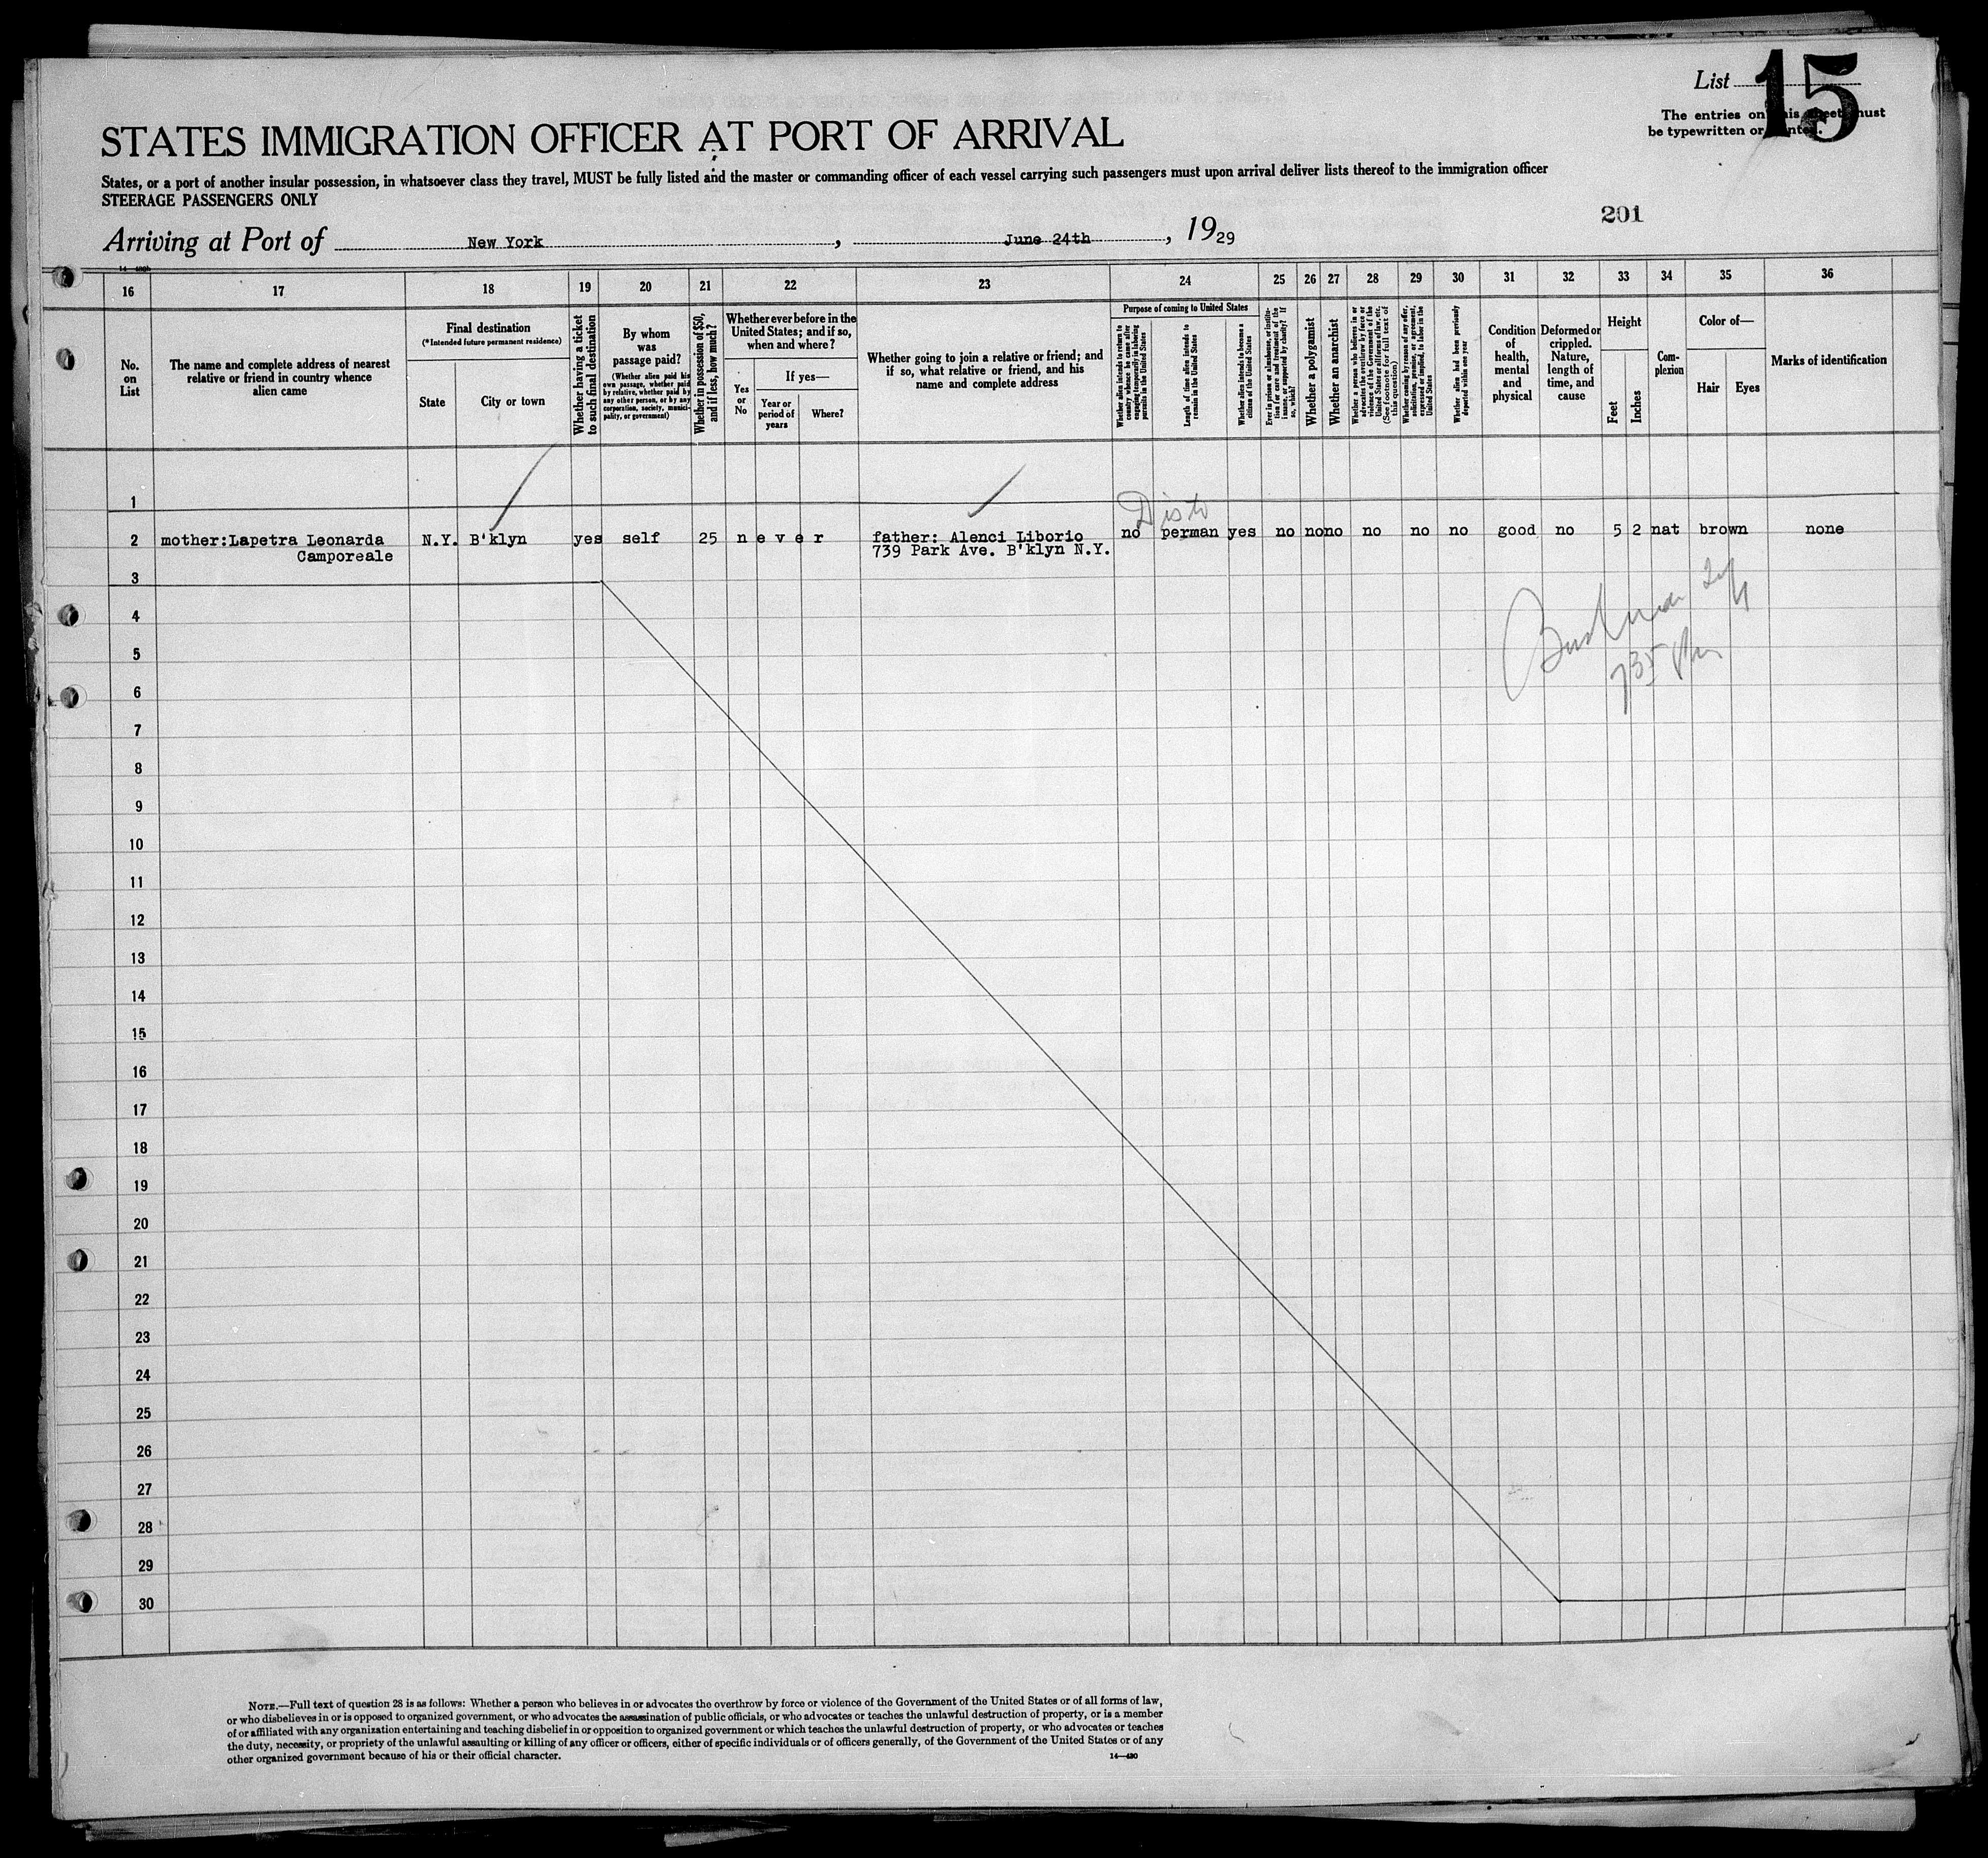 List 15
The entries on this sheet must
be typewritten or printed.
STATES IMMIGRATION OFFICER AT PORT OF ARRIVAL
States, or a port of another insular possession, in whatsoever class they travel, MUST be fully listed and the master or commanding officer of each vessel carrying such passengers must upon arrival deliver lists thereof to the immigration officer
STEERAGE PASSENGERS ONLY
201
Arriving at Port of New York, June 24th, 1929
16 17 18 19 20 21 22 23 24 25 26 27 28 29 30 31 32 33 34 35 36
No. on List
The name and complete address of nearest
relative or friend in country whence
alien came
Final destination
(*Intended future permanent residence)
State
City or town
Whether having a ticket
to such final destination
By whom
was
passage paid?
(Whether alien paid his
own passage, whether paid
by relative, whether paid by
any other person, or by any
corporation, society, munici-
pality, or government)
Whether in possession of $50,
and if less, how much?
Whether ever before in the
United States; and if so,
when and where?
Yes
or
No
If yes—
Year or
period of
years
Where?
Whether going to join a relative or friend; and
if so, what relative or friend, and his
name and complete address
Purpose of coming to United States
Whether alien intends to return to
country whence he came after
engaging temporarily in laboring
pursuits in the United States
Length of time alien intends to
remain in the United States
Whether alien intends to become a
citizen of the United States
Ever in prison or almshouse, or institu-
tion for care and treatment of the
insane, or supported by charity? If
so, which?
Whether a polygamist
Whether an anarchist
Whether a person who believes in or
advocates the overthrow by force or
violence of the Government of the
United States or all forms of law, etc.
(See footnote for full text of
this question)
Whether coming by reason of any offer,
solicitation, promise, or agreement,
expressed or implied, to labor in the
United States
Whether alien had been previously
deported within one year
Condition
of
health,
mental
and
physical
Deformed or
crippled.
Nature,
length of
time, and
cause
Height
Feet
Inches
Com-
plexion
Color of—
Hair
Eyes
Marks of identification
1
2 mother:Lapetra Leonarda N.Y. B'klyn yes self 25 never father: Alenci Liborio no perman yes no no no no no no good no 5 2 nat brown none
Camporeale 739 Park Ave. B'klyn N.Y.
3
4
5
6
7
8
9
10
11
12
13
14
15
16
17
18
19
20
21
22
23
24
25
26
27
28
29
30
NOTE.—Full text of question 28 is as follows: Whether a person who believes in or advocates the overthrow by force or violence of the Government of the United States or of all forms of law,
or who disbelieves in or is opposed to organized government, or who advocates the assassination of public officials, or who advocates or teaches the unlawful destruction of property, or is a member
of or affiliated with any organization entertaining and teaching disbelief in or opposition to organized government or which teaches the unlawful destruction of property, or who advocates or teaches
the duty, necessity, or propriety of the unlawful assaulting or killing of any officer or officers, either of specific individuals or of officers generally, of the Government of the United States or of any
other organized government because of his or their official character.
14—430